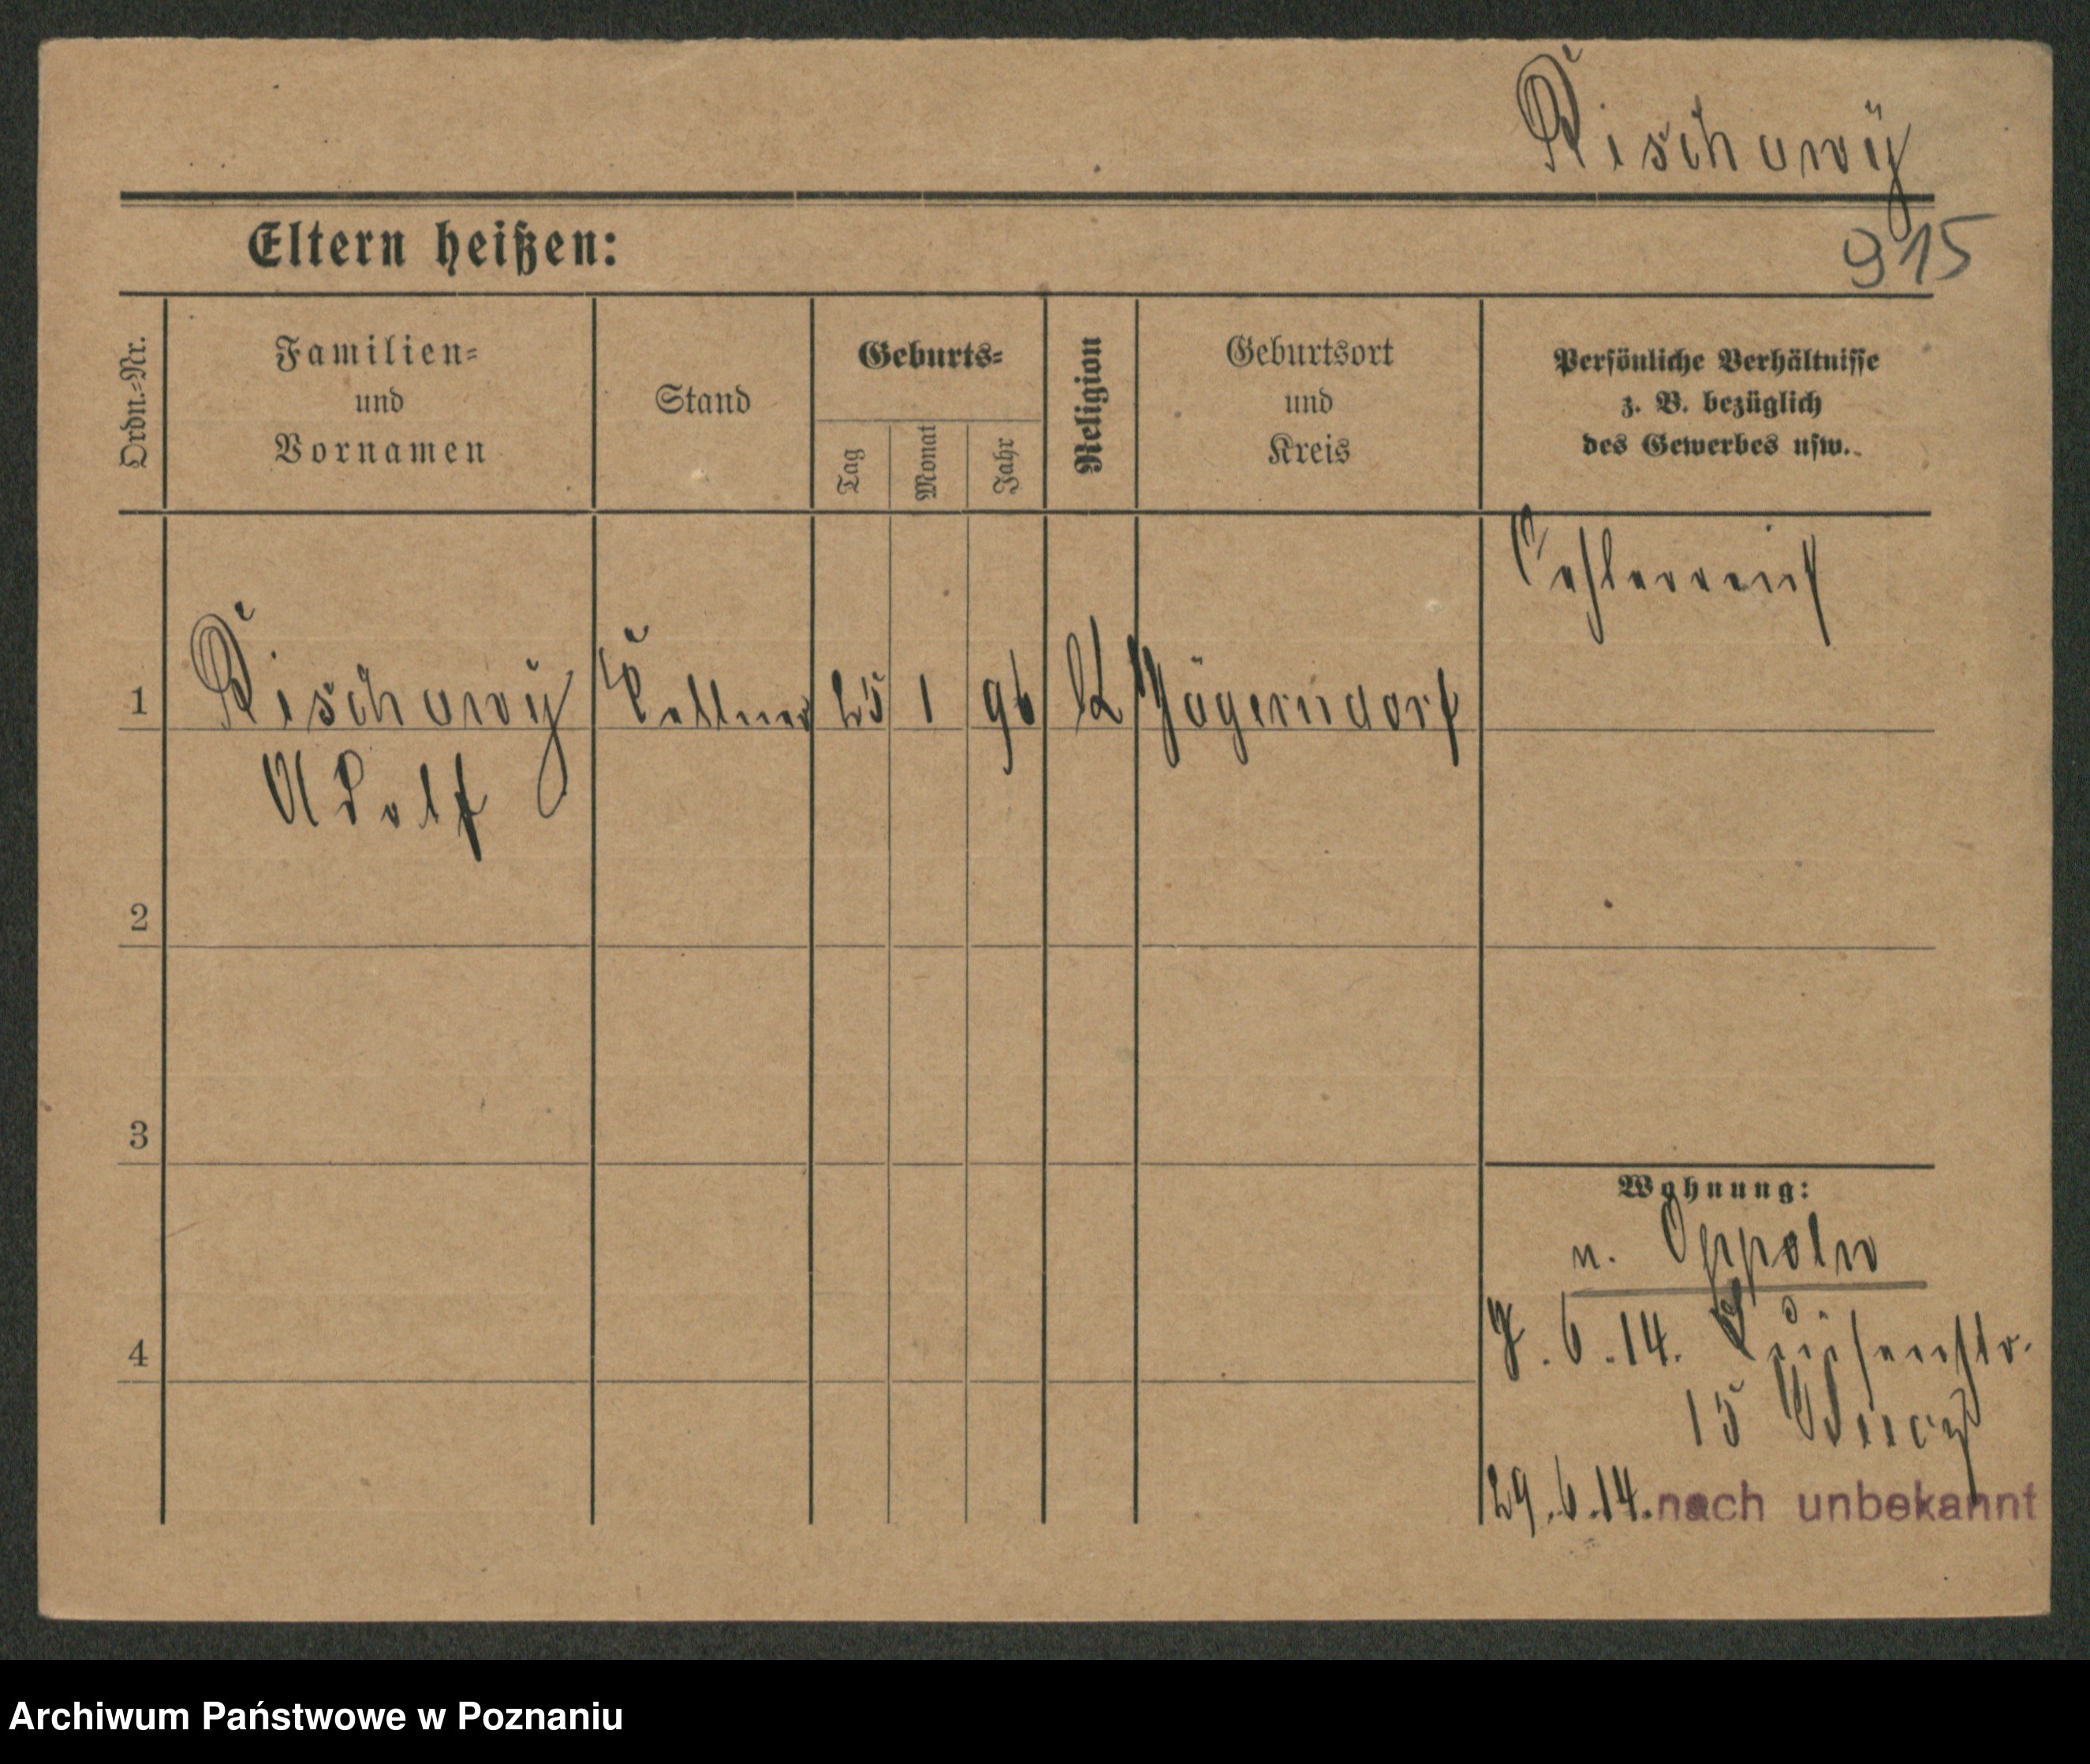 Rischawy
915
Eltern heißen:
Ordn.=Nr.
Familien=
und
Vornamen
Stand
Geburts=
Tag
Monat
Jahr
Religion
Geburtsort
und
Kreis
Persönliche Verhältnisse
z. B. bezüglich
des Gewerbes usw.
Oesterreich
1 Rischawy Kellner 25 1 96 K Jägerndorf
Adolf
2
3
4
Wohnung:
v. Oppeln
7.6.14. Luisenstr.
15
29.6.14. nach unbekannt
Archiwum Państwowe w Poznaniu